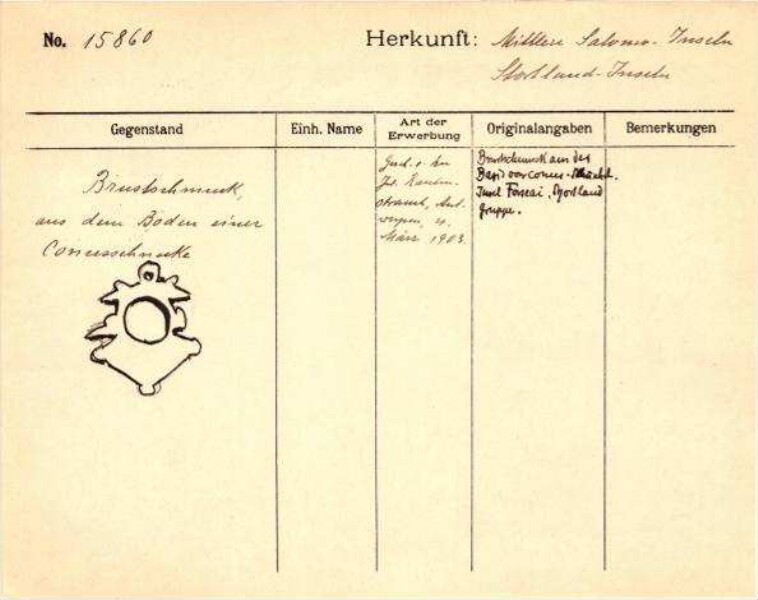 No. 15860
Herkunft: Mittlere Salomo-Inseln
Shortland-Inseln
Gegenstand
Einh. Name
Art der Erwerbung
Originalangaben
Bemerkungen
Brustschmuck,
aus dem Boden einer
Conusschnecke
Antwerpen, 4.
März 1903
Brustschmuck aus der
Basis von Conus-
Insel Shortland
Gruppe.